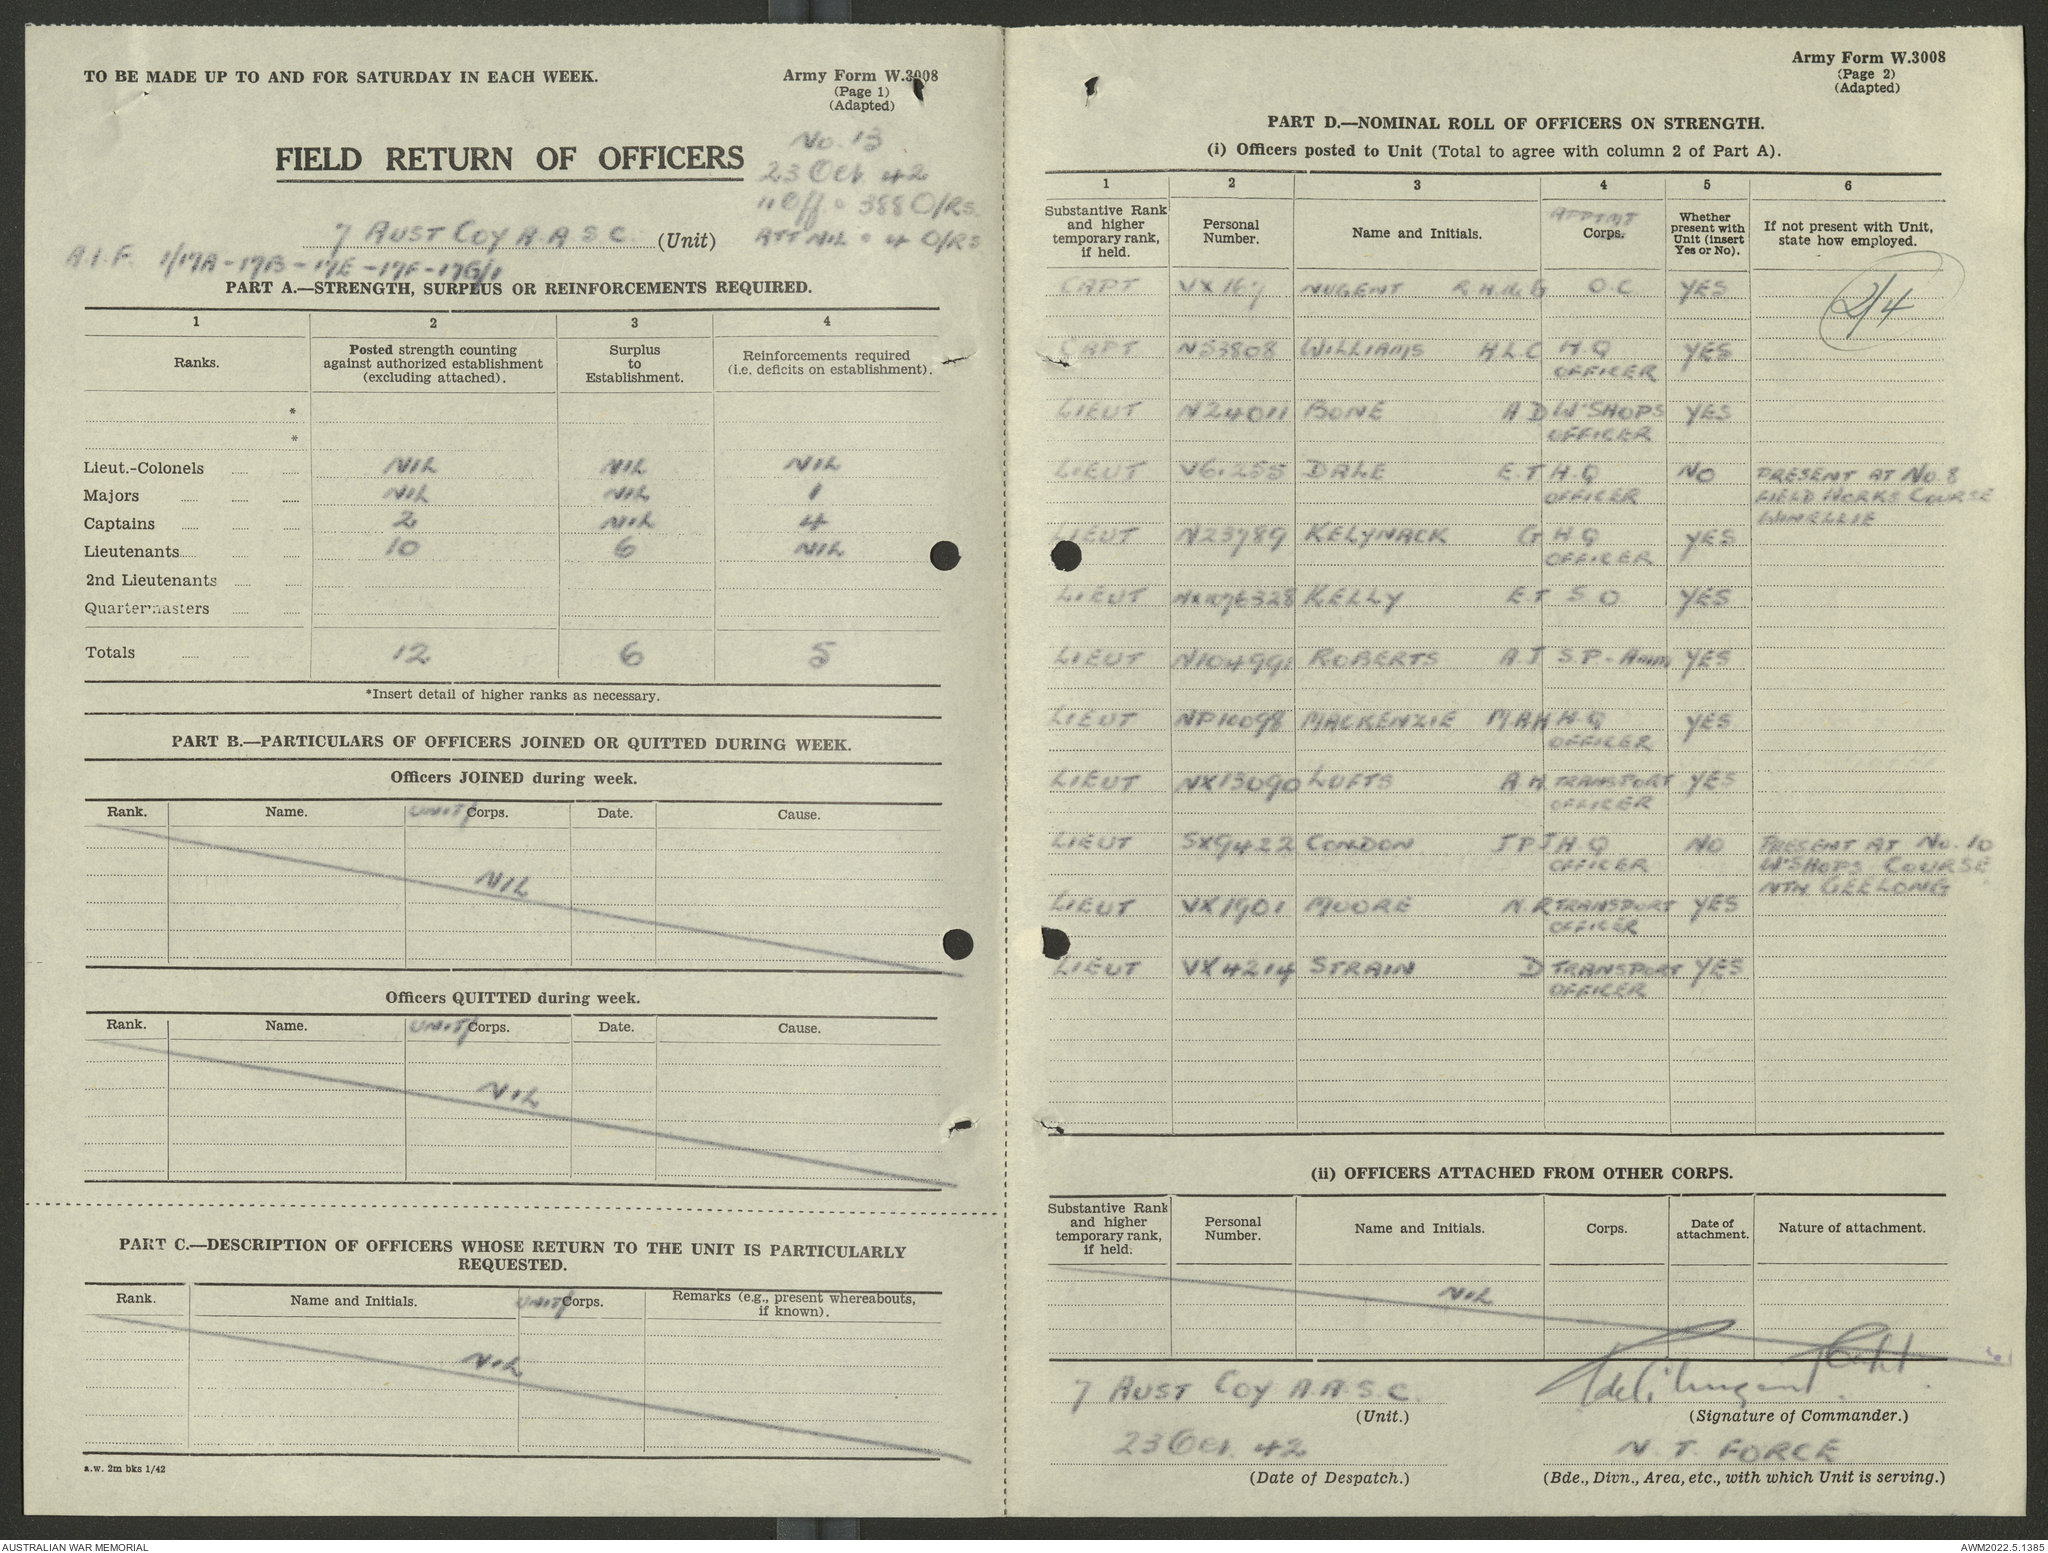 TO BE MADE UP TO AND FOR SATURDAY IN EACH WEEK.
Army Form W.3008
(Page 1)
(Adapted)
No. 13
23 Oct. 42
11 Off. 388 O/RS.
ATT NIL 4 O/RS
FIELD RETURN OF OFFICERS
7 AUST COY A.A.S.C. (Unit)
A.I.F. 1/17A-17B-17E-17F-17G/1
PART A.—STRENGTH, SURPLUS OR REINFORCEMENTS REQUIRED.
1 2 3 4
Ranks. Posted strength counting against authorized establishment (excluding attached). Surplus to Establishment. Reinforcements required (i.e. deficits on establishment).
*
*
Lieut.-Colonels NIL NIL NIL
Majors NIL NIL 1
Captains 2 NIL 4
Lieutenants 10 6 NIL
2nd Lieutenants
Quartermasters
Totals 12 6 5
*Insert detail of higher ranks as necessary.
PART B.—PARTICULARS OF OFFICERS JOINED OR QUITTED DURING WEEK.
Officers JOINED during week.
Rank. Name. UNIT/Corps. Date. Cause.
NIL
Officers QUITTED during week.
Rank. Name. UNIT/Corps. Date. Cause.
NIL
PART C.—DESCRIPTION OF OFFICERS WHOSE RETURN TO THE UNIT IS PARTICULARLY
REQUESTED.
Rank. Name and Initials. UNIT/Corps. Remarks (e.g., present whereabouts, if known).
NIL
a.w. 2m bks 1/42
Army Form W.3008
(Page 2)
(Adapted)
PART D.—NOMINAL ROLL OF OFFICERS ON STRENGTH.
(i) Officers posted to Unit (Total to agree with column 2 of Part A).
1 2 3 4 5 6
Substantive Rank and higher temporary rank, if held. Personal Number. Name and Initials. APPTMT Corps. Whether present with Unit (insert Yes or No). If not present with Unit, state how employed.
CAPT VX167 NUGENT O.C. YES
2/4
CAPT N53808 WILLIAMS H L C H.Q YES
OFFICER
LIEUT N24011 BONE A D W'SHOPS YES
OFFICER
LIEUT V61255 DALE E.T H.Q NO PRESENT AT No. 8
OFFICER FIELD WORKS COURSE
WINELLIE
LIEUT N23789 KELYNACK G H Q YES
OFFICER
LIEUT NX1076328 KELLY E.T S O YES
LIEUT N104991 ROBERTS A.J S.P-Amm YES
LIEUT NP10098 MACKENZIE M.A.H H.Q YES
OFFICER
LIEUT NX13090 LUFTS A.H TRANSPORT YES
OFFICER
LIEUT SX9422 CONDON J P J H.Q NO PRESENT AT No. 10
OFFICER W'SHOPS COURSE
NTH GEELONG
LIEUT VX1901 MOORE N.R TRANSPORT YES
OFFICER
LIEUT VX4214 STRAIN D TRANSPORT YES
OFFICER
(ii) OFFICERS ATTACHED FROM OTHER CORPS.
Substantive Rank and higher temporary rank, if held. Personal Number. Name and Initials. Corps. Date of attachment. Nature of attachment.
NIL
7 AUST COY A.A.S.C.
(Unit.) (Signature of Commander.)
23 Oct. 42 N.T. FORCE
(Date of Despatch.) (Bde., Divn., Area, etc., with which Unit is serving.)
AUSTRALIAN WAR MEMORIAL AWM2022.5.1385